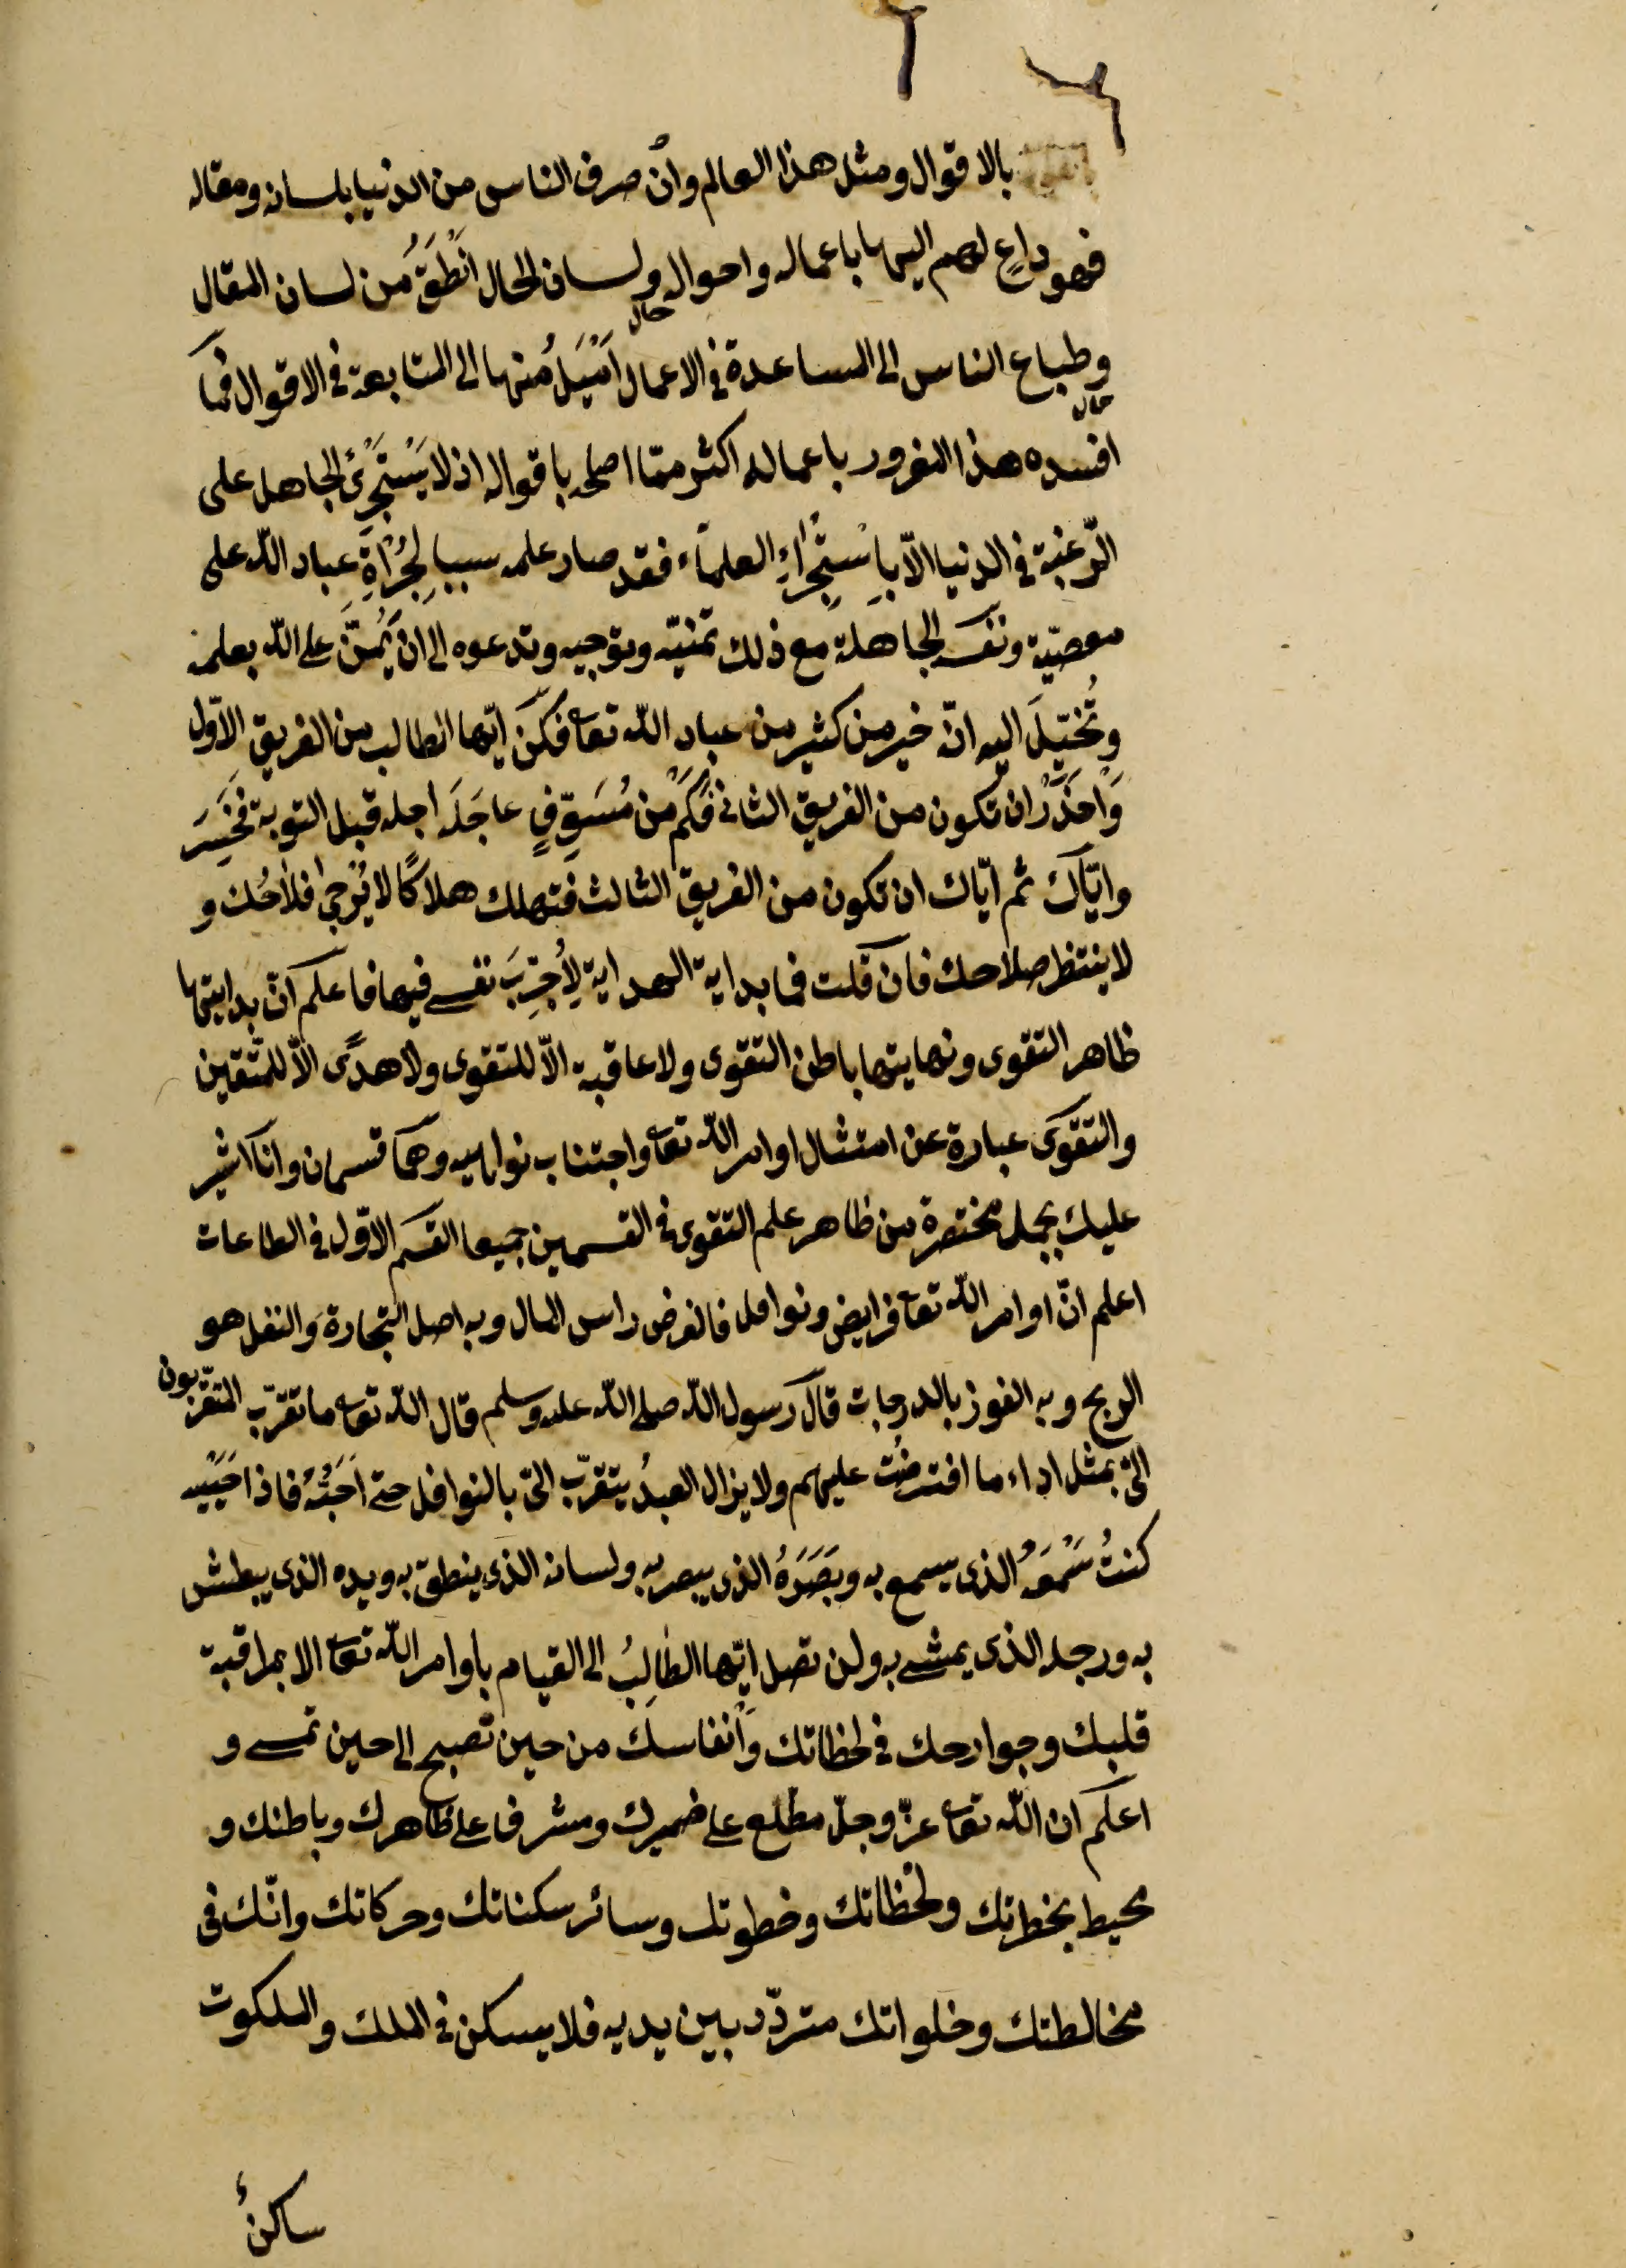 بالاقوال ومثل هذا العالم وان صرف الناس من الدنيا بلسانه ومقاله
فهو داعٍ لهم اليها باعماله واحواله ولسان الحال انطَقُ من لسان المقال
حال
وطباع الناس الى المساعدة في الاعمال اَمْيَلُ منها الى المتابعة في الاقوال فما
حال
افسده هذا المغرور باعماله اكثر ممّا اصلحه باقواله اذ لا يَسْتَجْرِئُ الجاهل على
الرّغبة في الدنيا الّا بِاسْتِجْراءِ العلماء فقد صار علمه سببا لِجُرْأَةِ عباد اللّه على
معصيّة ونفسه الجاهلة مع ذلك تمنيّه وترجيه وتدعوه الى ان يَمُنَّ على اللّه بعلمه
وتُخَيِّلَ اليه انّه خير من كثير من عباد اللّه تعا فكن ايّها الطالب من الفريق الاوّل
وَاحْذَرْ ان تكون من الفريق الثاني فَكَمْ من مُسَوِّفٍ عاجَلَه اجله قبل التوبة فخَسِرَ
وايّاك ثم ايّاك ان تكون من الفريق الثالث فتهلك هلاكًا لا يُرْجى فلاحُك و
لا ينتظر صلاحك فان قلت فما بداية الهداية لِأُجَرِّبَ نفسى فيها فاعلم انّ بدايتها
ظاهر التقوى ونهايتها باطن التقوى ولا عاقبة الّا للتقوى ولا هدًى الّا للمتّقين
والتقوى عبارة عن امتثال اوامر اللّه تعا واجتناب نواهيه وهما قسمان وانا اشير
عليك بجمل مختصرة من ظاهر علم التقوى في القسمين جميعا القسم الاوّل في الطاعات
اعلم انّ اوامر اللّه تعا فرايض ونوافل فالفرض راس المال وبه اصل التجارة والنفل هو
الربح وبه الفوز بالدرجات قال رسول اللّه صلى اللّه عليه وسلم قال اللّه تعا ما تقرّب المتقرّبون
الىّ بمثل اداء ما افترضتُ عليهم ولا يزال العبدُ يتقرّب الىّ بالنوافل حتى اُحَبّهُ فاذا احببته
كنتُ سَمْعَهُ الذى يسمع به وبَصَرَهُ الذى يبصر به ولسانه الذى ينطق به ويده الذى يبطش
به ورجله الذى يمشى به ولن تصل ايّها الطالِبُ الى القيام باوامر اللّه تعا الا بمراقبة
قلبك وجوارحك في لحظاتك وانفاسك من حين تصبح الى حين تمسى و
اعلم ان اللّه تعا عزّ وجلّ مطلع على ضميرك ومشرف على ظاهرك وباطنك و
محيط بخطراتك ولحظاتك وخطوتك وسائر سكناتك وحركاتك وانّك فى
مخالطتك وخلواتك متردّد بين يديه فلا يسكن في الملك والملكوت
ساكنٌ